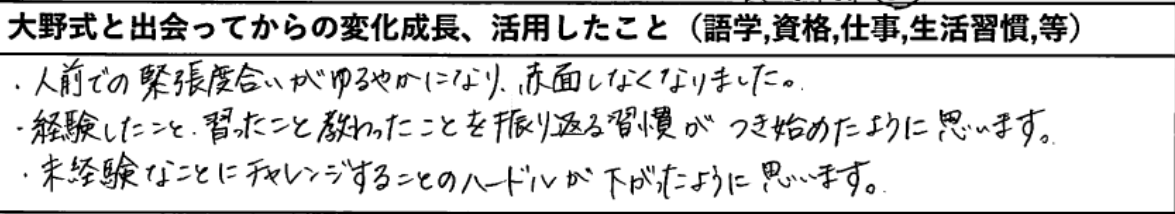 大野式と出会ってからの変化成長、活用したこと（語学,資格,仕事,生活習慣,等）
・人前での緊張度合いがゆるやかになり、赤面しなくなりました。
・経験したこと、習ったこと教わったことを振り返る習慣がつき始めたように思います。
・未経験なことにチャレンジすることのハードルが下がったように思います。